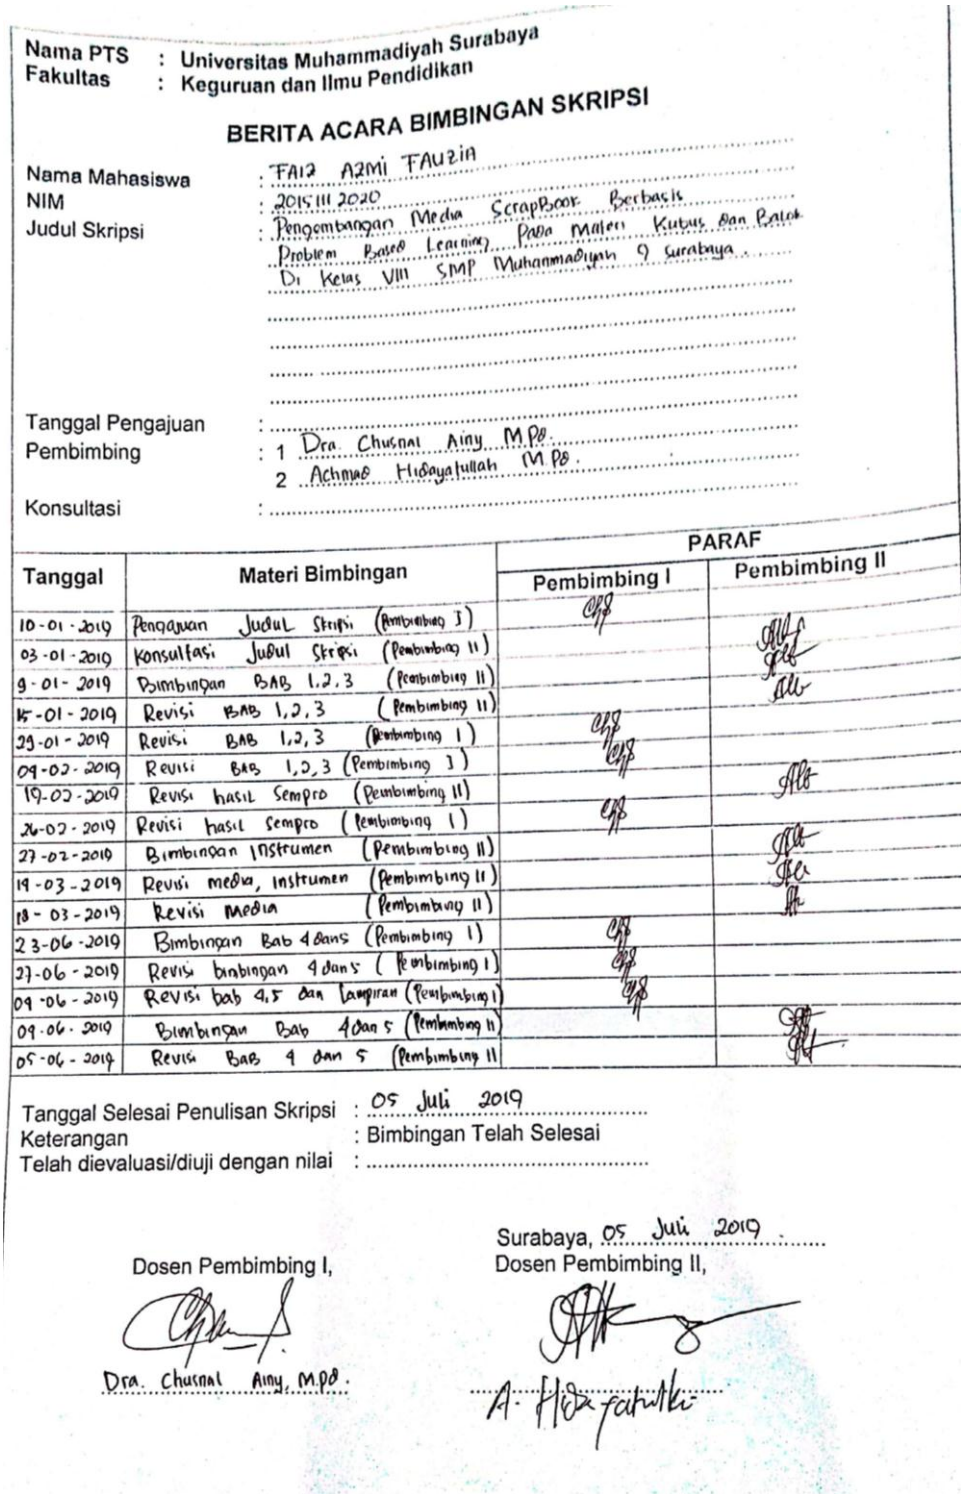 Nama PTS : Universitas Muhammadiyah Surabaya
Fakultas : Keguruan dan Ilmu Pendidikan
BERITA ACARA BIMBINGAN SKRIPSI
Nama Mahasiswa : FAIZ AZMI FAUZIA
NIM : 20151112020
Judul Skripsi : Pengembangan Media ScrapBook Berbasis
Problem Based Learning Pada Materi Kubus Dan Balok
Di Kelas VIII SMP Muhammadiyah 9 Surabaya.
Tanggal Pengajuan :
Pembimbing : 1 Dra. Chusnal Ainy M.Pd.
2 Achmad Hidayatullah M.Pd.
Konsultasi :
PARAF
Tanggal Materi Bimbingan Pembimbing I Pembimbing II
10-01-2019 Pengajuan Judul Skripsi (Pembimbing I)
03-01-2019 Konsultasi Judul Skripsi (Pembimbing II)
9-01-2019 Bimbingan BAB 1,2,3 (Pembimbing II)
15-01-2019 Revisi BAB 1,2,3 (Pembimbing II)
29-01-2019 Revisi BAB 1,2,3 (Pembimbing I)
04-02-2019 Revisi BAB 1,2,3 (Pembimbing I)
19-02-2019 Revisi hasil Sempro (Pembimbing II)
26-02-2019 Revisi hasil Sempro (Pembimbing I)
27-02-2019 Bimbingan Instrumen (Pembimbing II)
14-03-2019 Revisi media, instrumen (Pembimbing II)
18-03-2019 Revisi Media (Pembimbing II)
23-06-2019 Bimbingan Bab 4 dan 5 (Pembimbing I)
27-06-2019 Revisi bimbingan 4 dan 5 (Pembimbing I)
04-06-2019 Revisi bab 4,5 dan lampiran (Pembimbing I)
04-06-2019 Bimbingan Bab 4 dan 5 (Pembimbing II
05-06-2019 Revisi BAB 4 dan 5 (Pembimbing II
Tanggal Selesai Penulisan Skripsi : 05 Juli 2019
Keterangan : Bimbingan Telah Selesai
Telah dievaluasi/diuji dengan nilai :
Surabaya, 05 Juli 2019
Dosen Pembimbing I, Dosen Pembimbing II,
Dra. Chusnal Ainy, M.Pd.
A. Hidayatullah